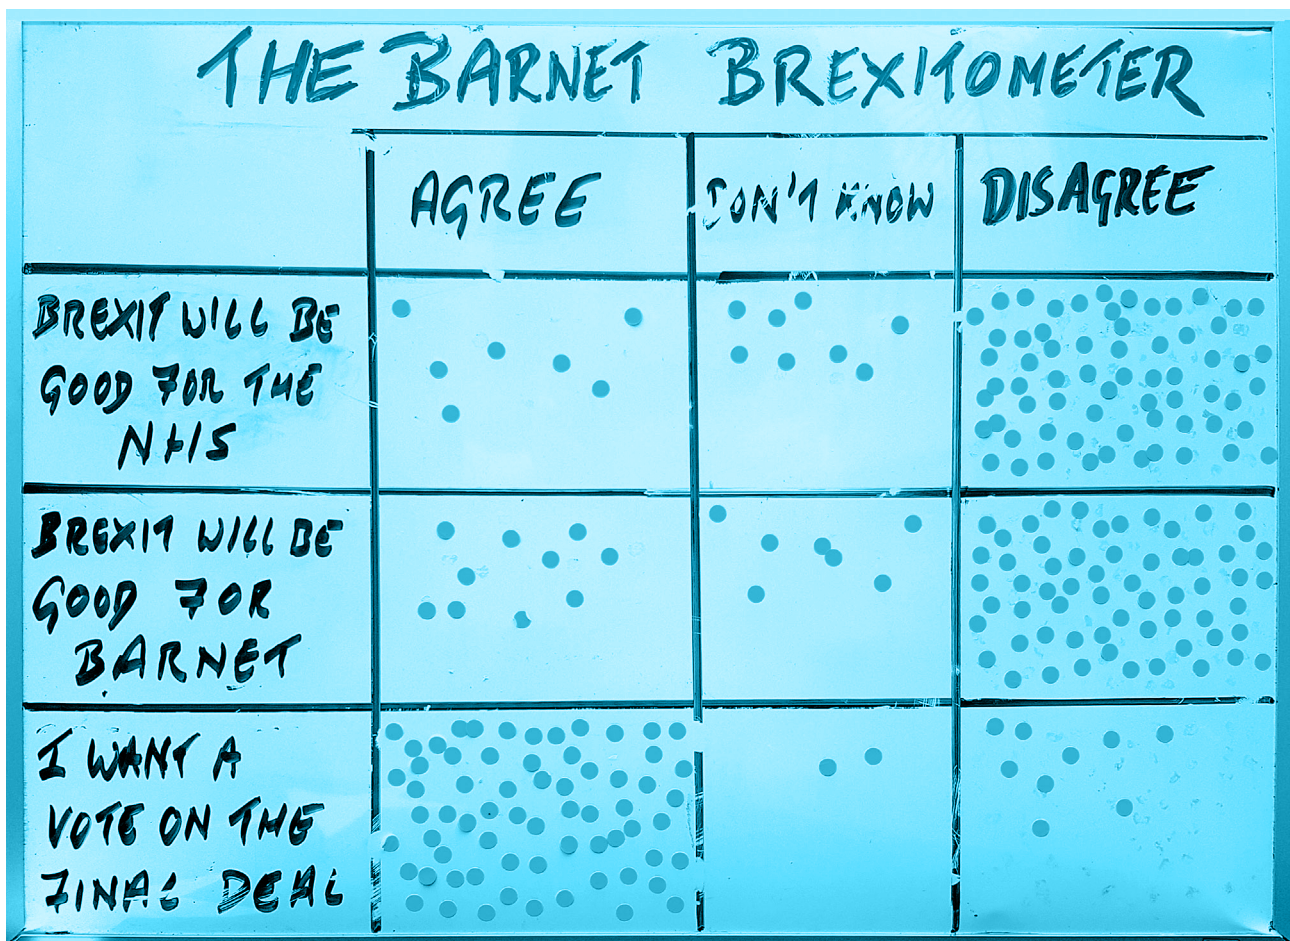 THE BARNET BREXITOMETER
AGREE DON'T KNOW DISAGREE
BREXIT WILL BE
GOOD FOR THE
NHS
BREXIT WILL BE
GOOD FOR
BARNET
I WANT A
VOTE ON THE
FINAL DEAL